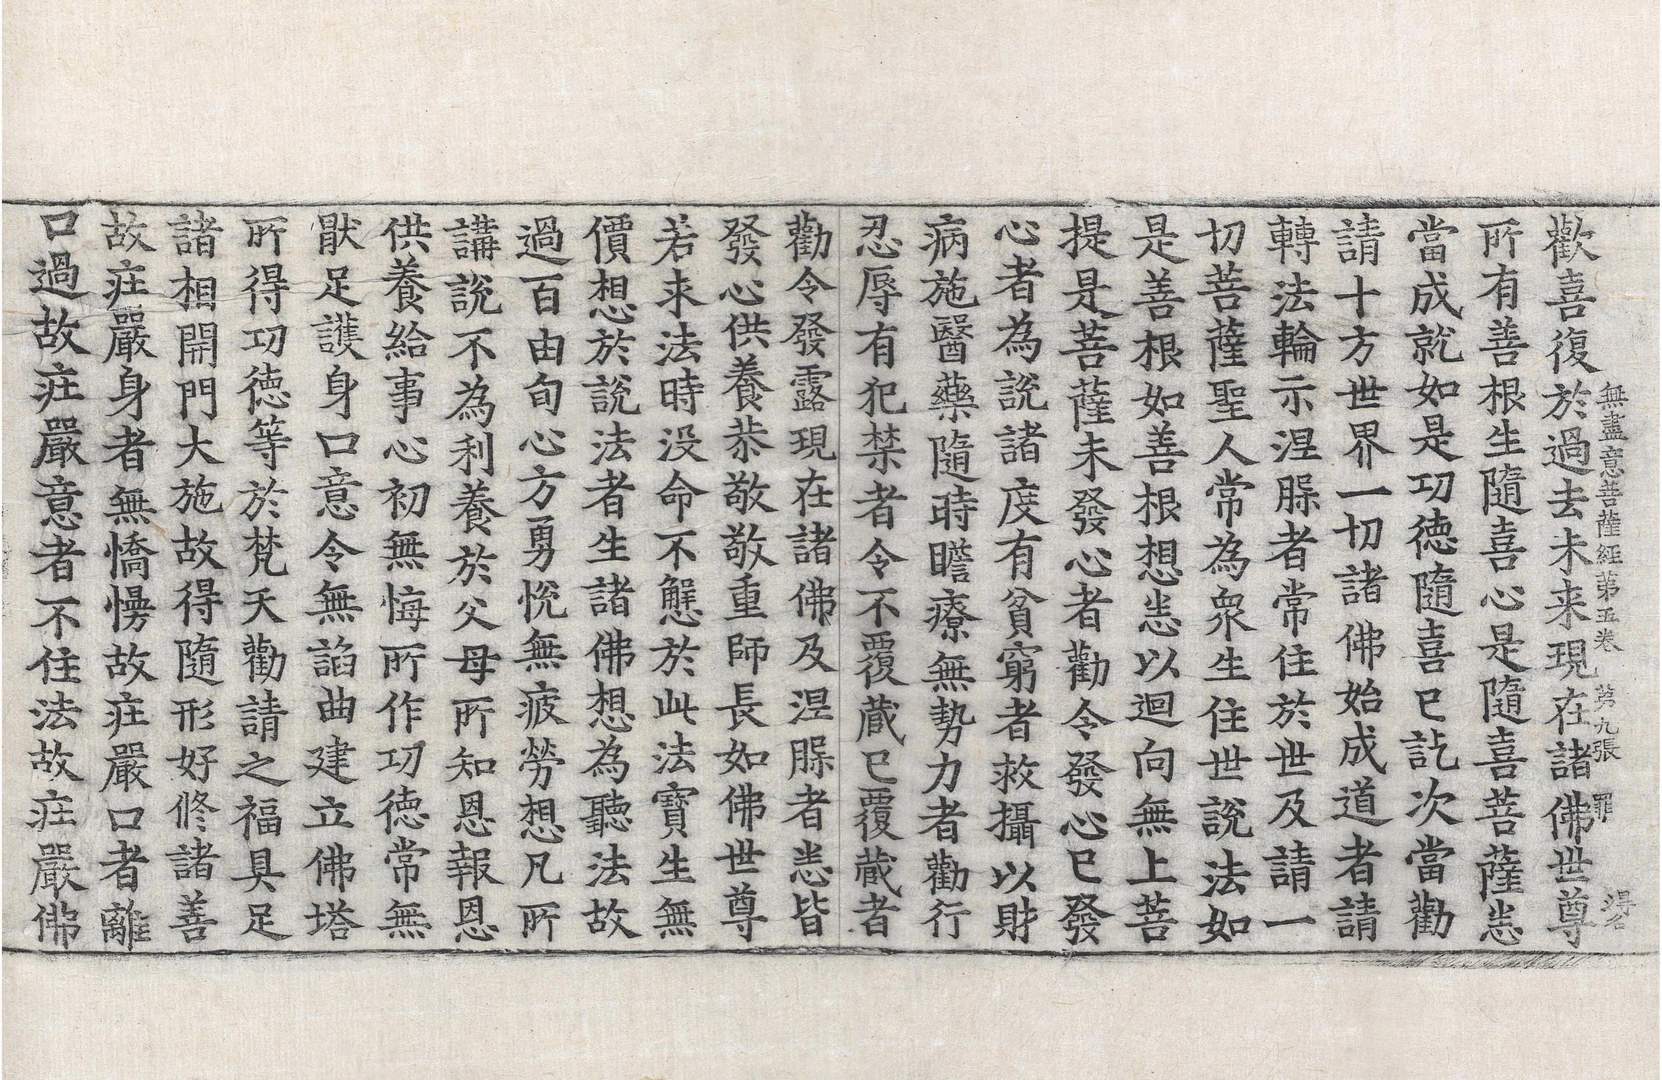 無盡意菩薩經第五卷 第九張 罪
歡喜復於過去未来現在諸佛世尊
所有善根生隨喜心是隨喜菩薩悉
當成就如是功德隨喜已訖次當勸
請十方世界一切諸佛始成道者請
轉法輪示涅槃者常住於世及請一
切菩薩聖人常為衆生住世說法如
是善根如善根想悉以迴向無上菩
提是菩薩未發心者勸令發心已發
心者為說諸度有貧窮者救攝以財
病施醫藥隨時瞻療無勢力者勸行
忍辱有犯禁者令不覆蔵已覆蔵者
勸令發露現在諸佛及涅槃者悉皆
發心供養恭敬敬重師長如佛世尊
若求法時没命不懈於此法寶生無
價想於說法者生諸佛想為聽法故
過百由旬心方勇恱無疲勞想凡所
講說不為利養於父母所知恩報恩
供養給事心初無悔所作功德常無
猒足護身口意令無諂曲建立佛塔
所得功德等於梵天勸請之福具足
諸相開門大施故得隨形好修諸善
故庄嚴身者無憍慢故庄嚴口者離
口過故庄嚴意者不住法故庄嚴佛